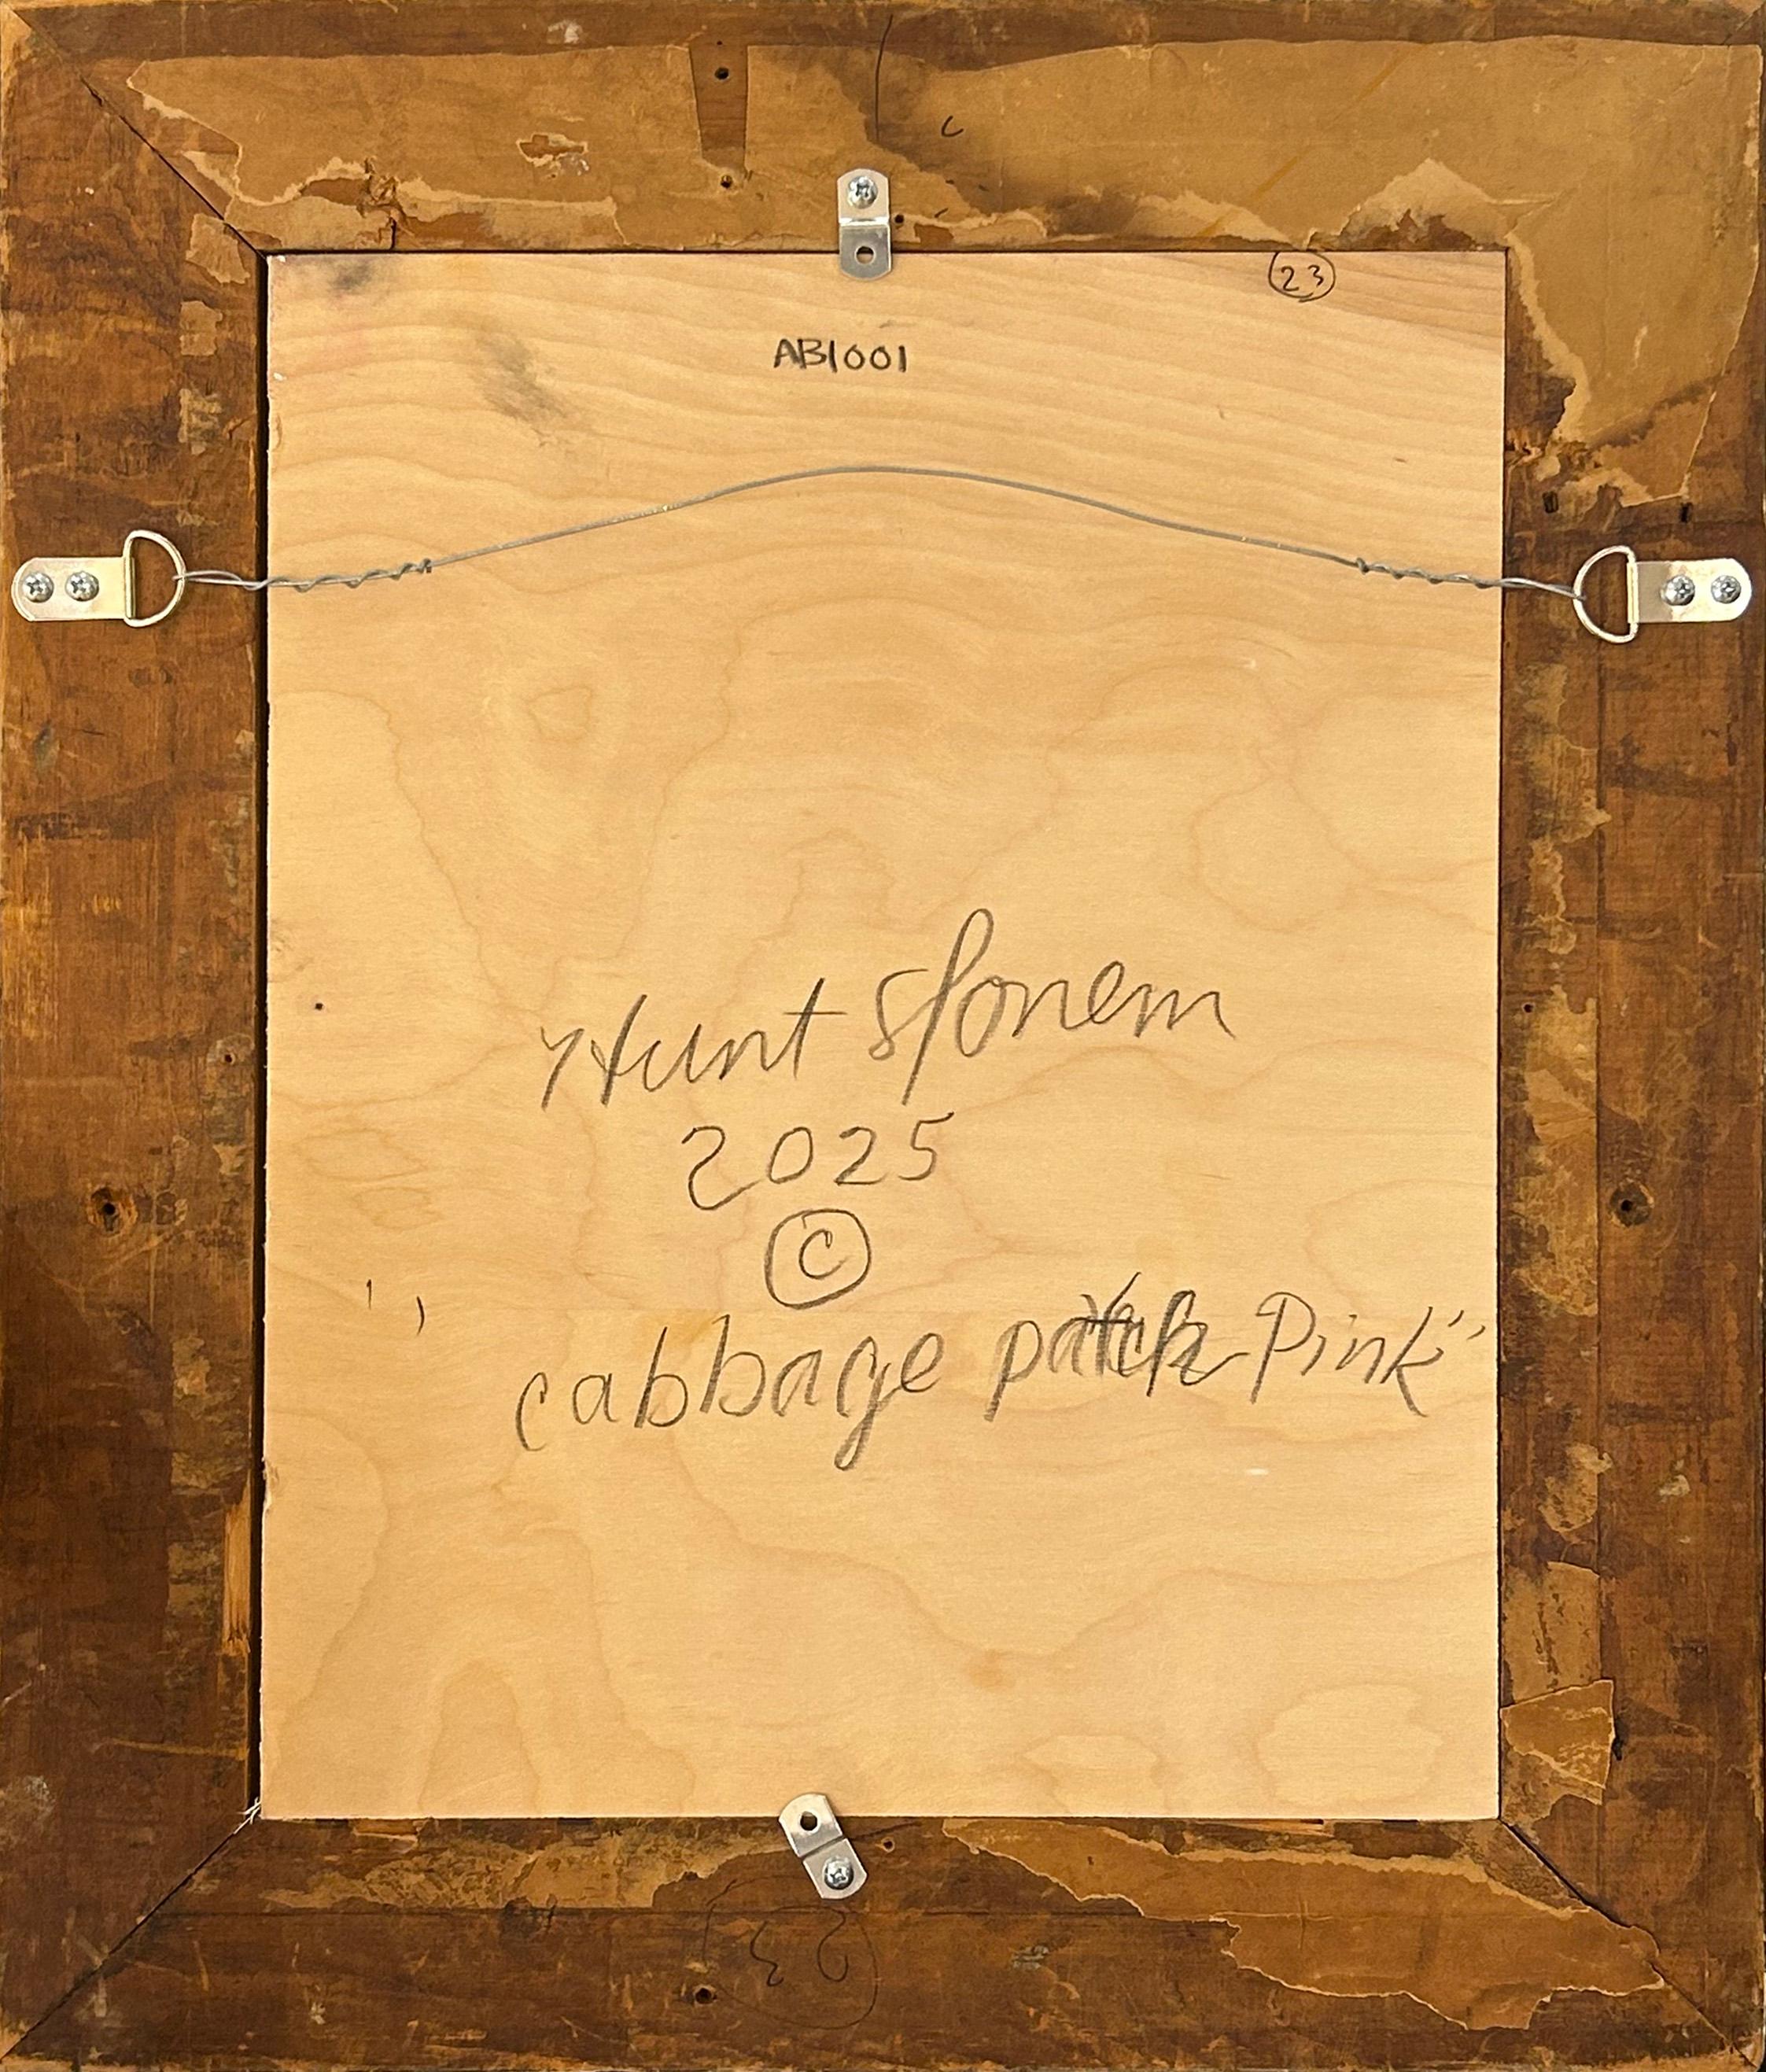 23
AB1001
Hunt Slonem
2025
©
"cabbage patch Pink"
23